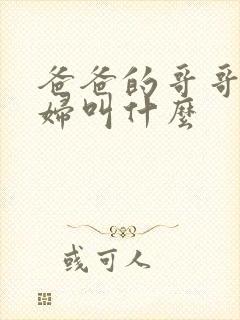 爸爸的哥哥
婦叫什麼
彧可人